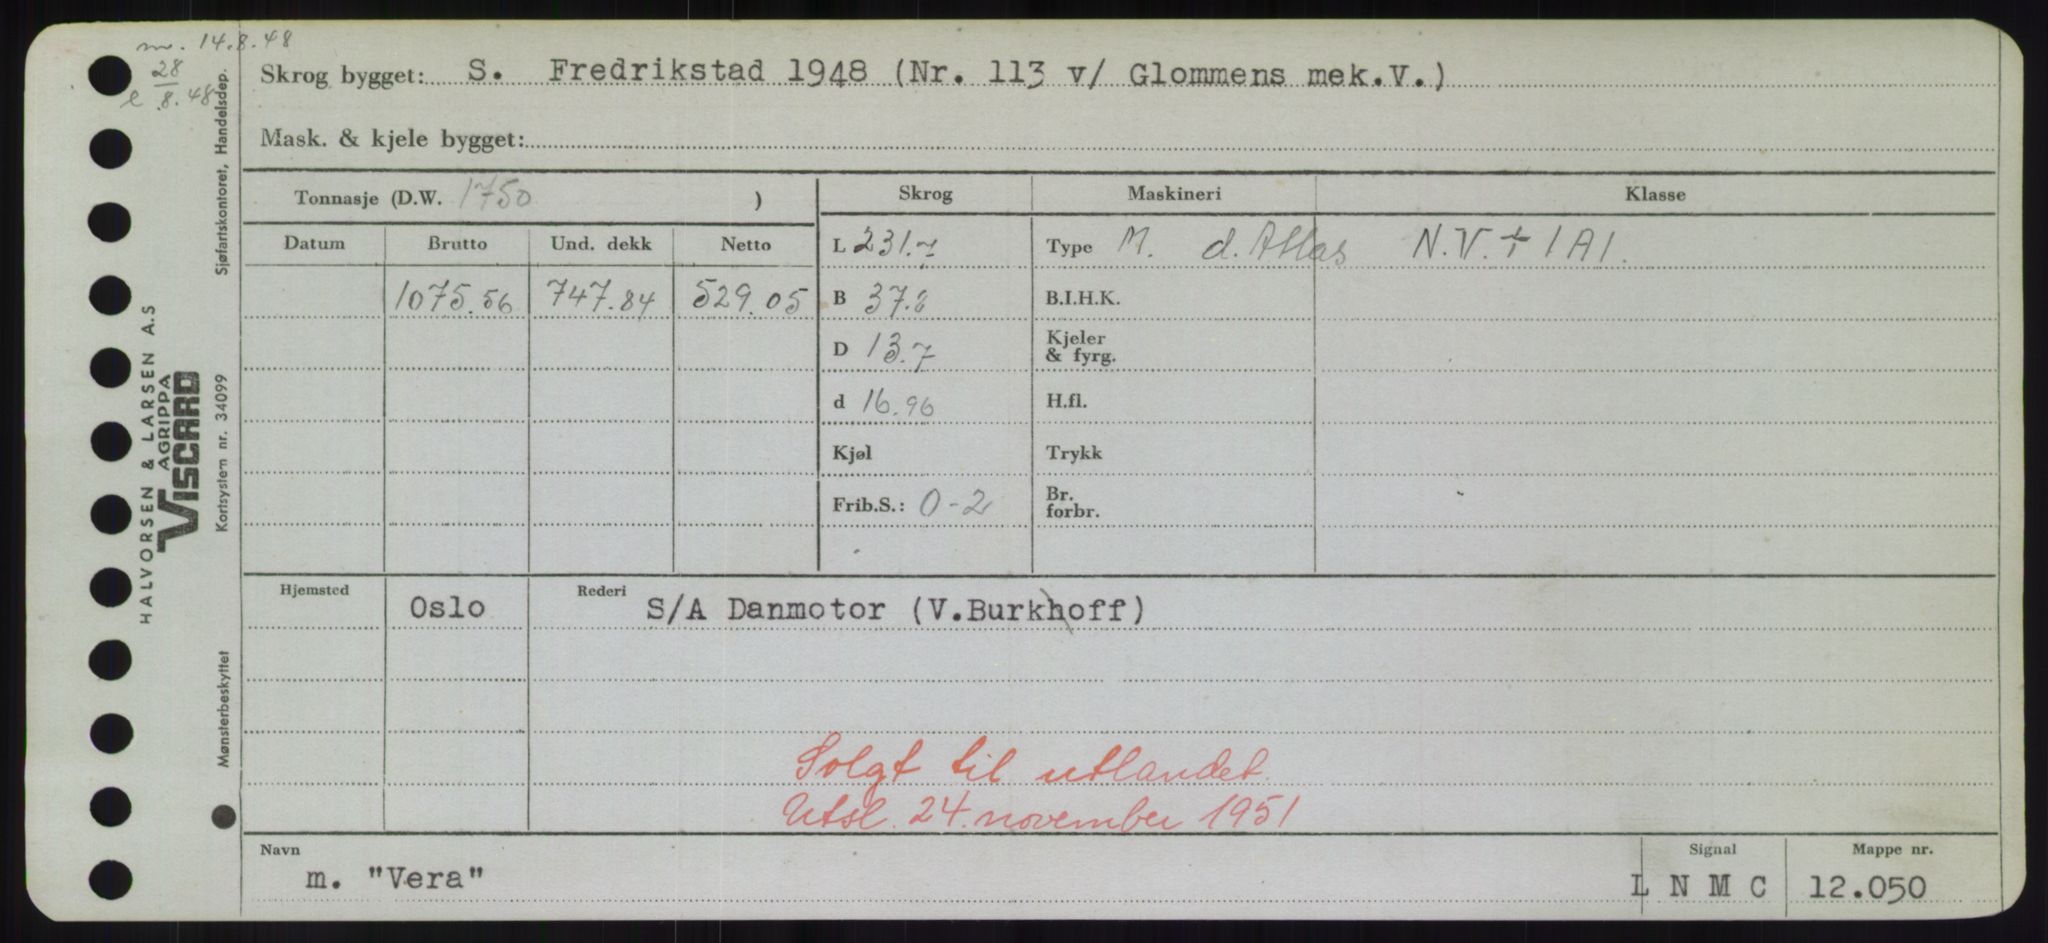 m. 14.8.48
28
e 8.48
Skrog bygget: S. Fredrikstad 1948 (Nr. 113 v/ Glommens mek.V.)
Mask. & kjele bygget:
Tonnasje (D.W. 1750 )
Skrog Maskineri Klasse
Datum Brutto Und. dekk Netto
L 231.7 Type M. d. Atlas N.V. + 1A1.
1075.56 747.84 529.05
B 37. B.I.H.K.
D 13.7 Kjeler & fyrg.
d 16.96 H.fl.
Kjøl Trykk
Frib.S.: 0-2 Br. forbr.
Hjemsted Oslo Rederi S/A Danmotor (V.Burkhoff)
Solgt til utlandet.
Utsl. 24. november 1951
Navn Signal Mappe nr.
m. "Vera" L N M C 12.050
Sjøfartskontoret, Handelsdep.
HALVORSEN & LARSEN A.S
AGRIPPA
VISCARD
Kortsystem nr. 34099
Mønsterbeskyttet